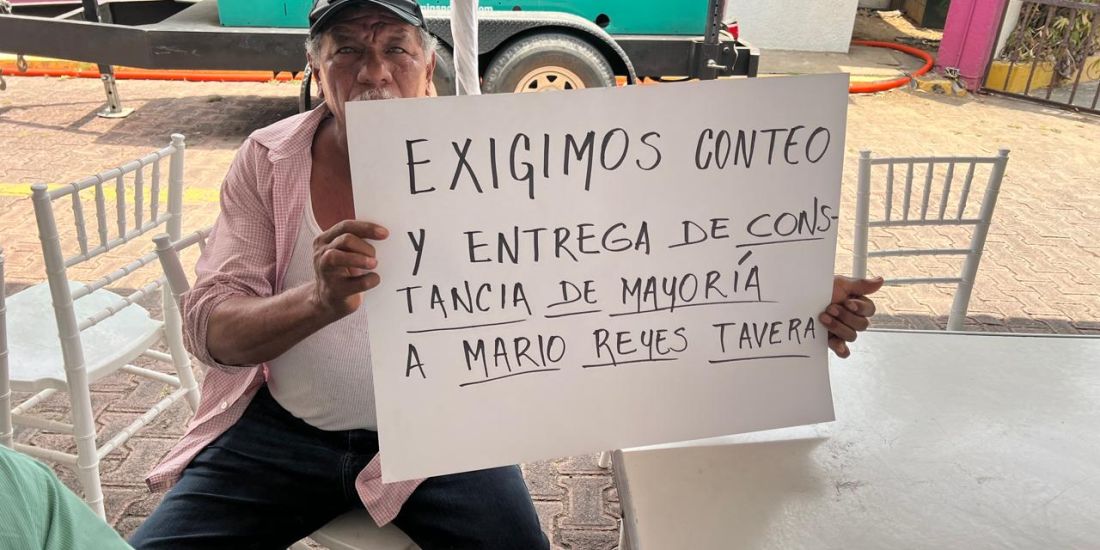 EXIGIMOS CONTEO
Y ENTREGA DE CONS-
TANCIA DE MAYORÍA
A MARIO REYES TAVERA